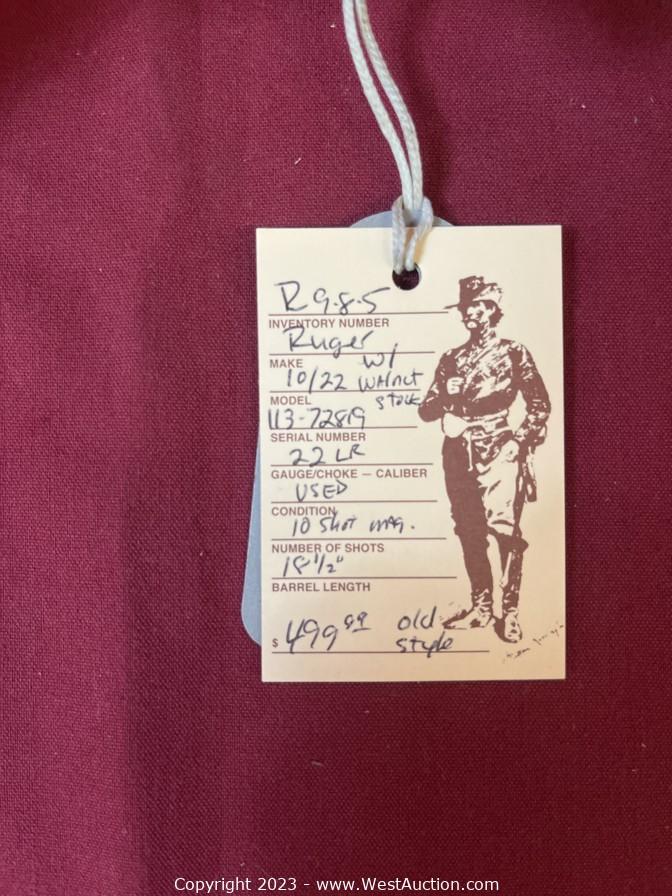 R 9-8-5
INVENTORY NUMBER
Ruger
MAKE W/
10/22 WALNUT
MODEL STOCK
113-72819
SERIAL NUMBER
22 LR
GAUGE/CHOKE — CALIBER
USED
CONDITION
10 SHOT MAG.
NUMBER OF SHOTS
18 1/2"
BARREL LENGTH
$ 499.99 old
style
Copyright 2023 - www.WestAuction.com